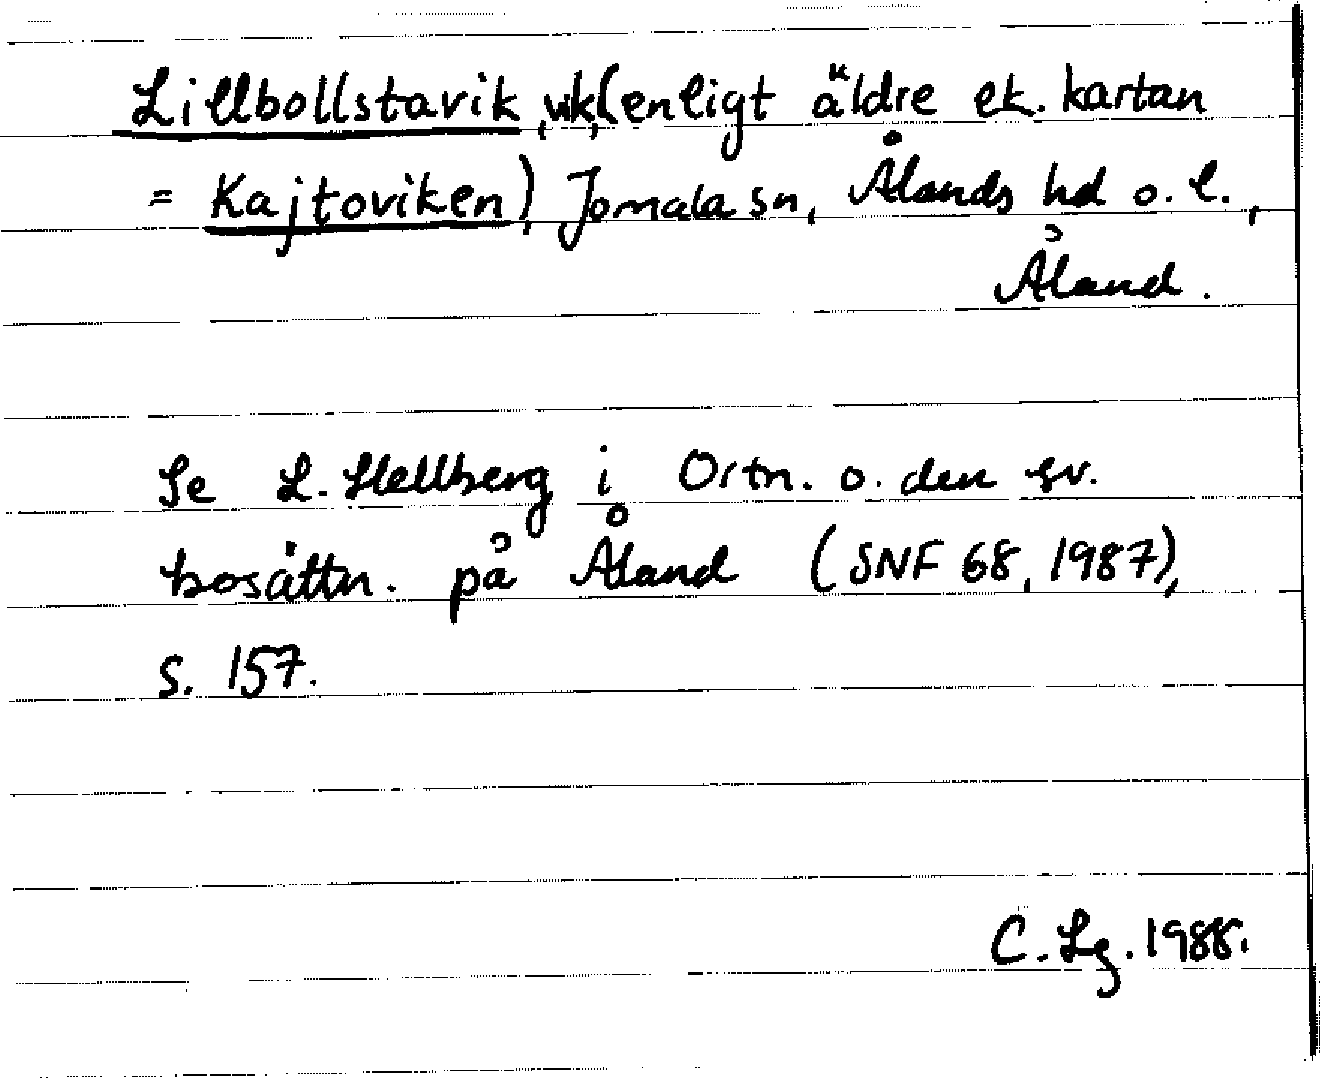 Lillbollstavik, vik, (enligt äldre ek. kartan
= Kajtoviken) Jomala sn, Ålands hd o. l.,
Åland.
Se L. Hellberg i Ortn. o. den sv.
bosättn. på Åland (SNF 68, 1987),
s. 157.
C. Lg. 1988.